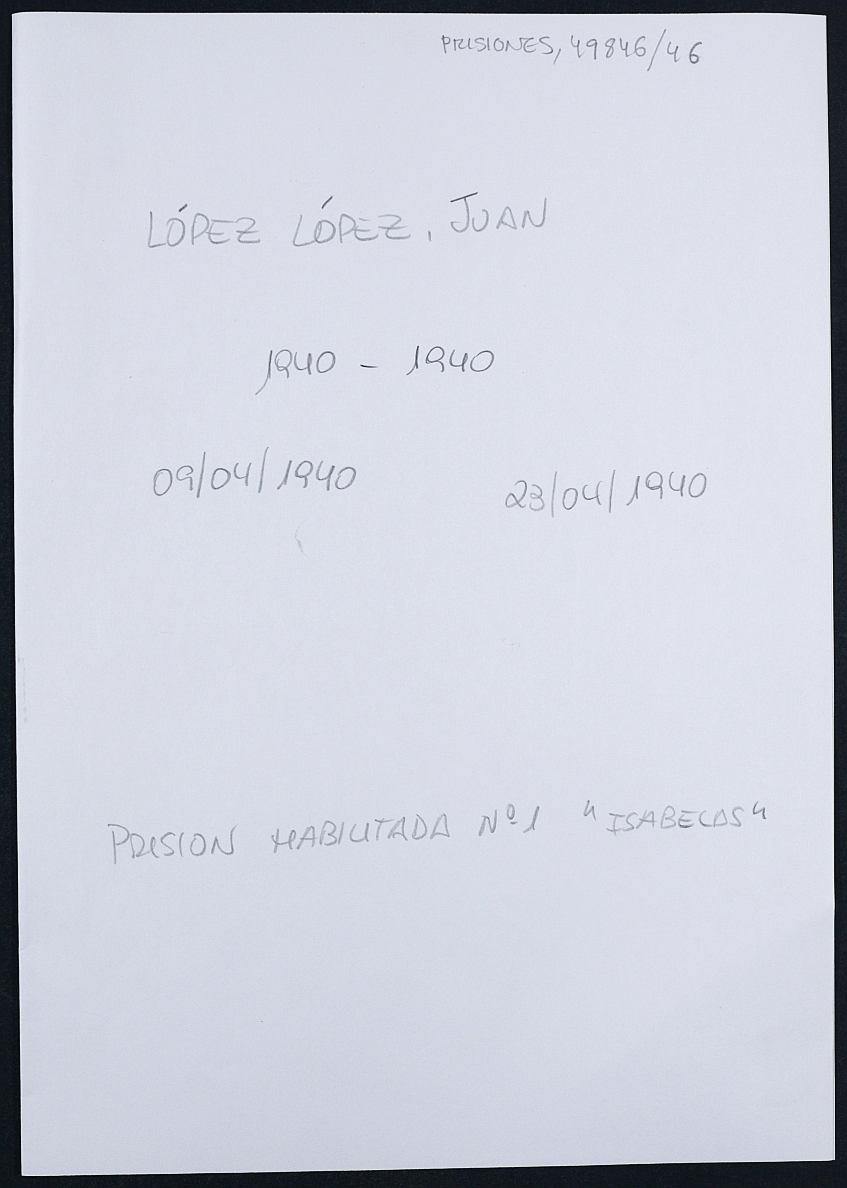 PRISIONES, 49846/46
LÓPEZ LÓPEZ, JUAN
1940 - 1940
09/04/1940 23/04/1940
PRISION HABILITADA Nº1 "ISABELAS"